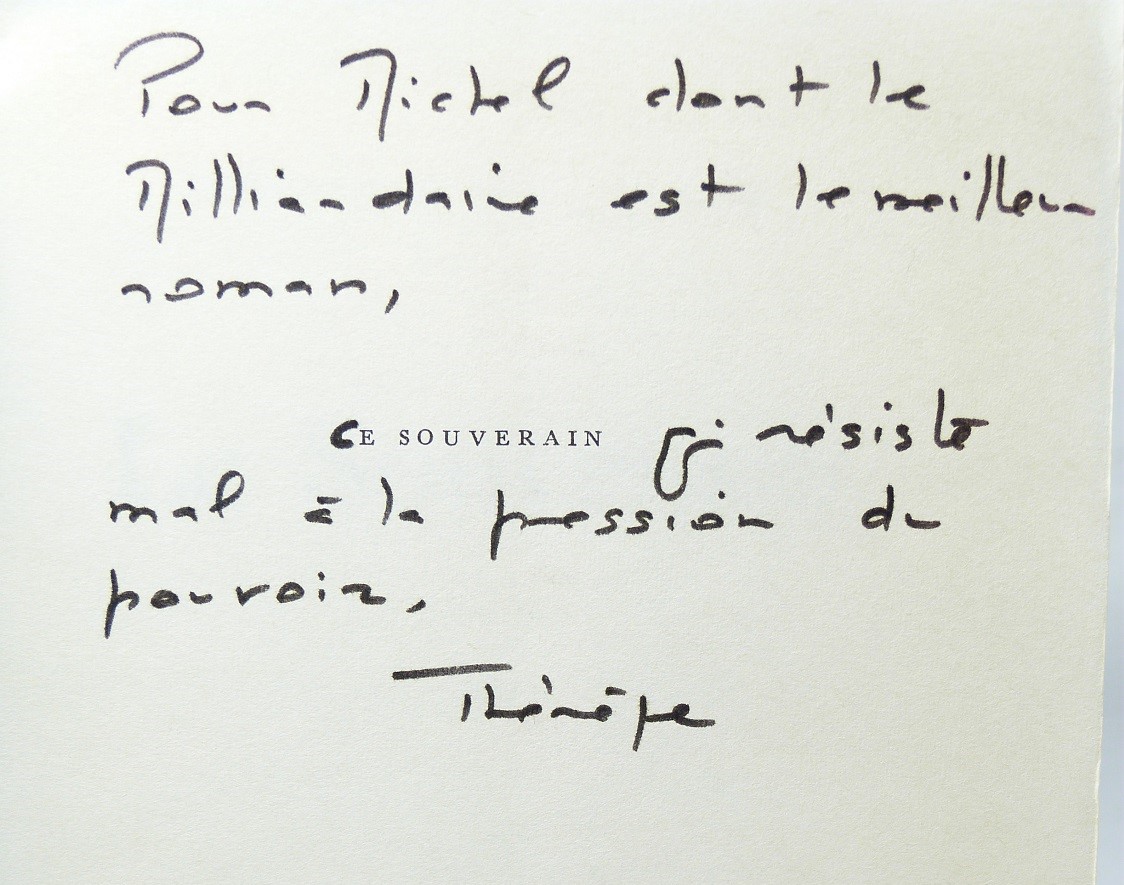 Pour Michel dont le
Milliardaire est le meilleur
roman,
CE SOUVERAIN qui résiste
mal à la pression du
pouvoir,
Thérèse